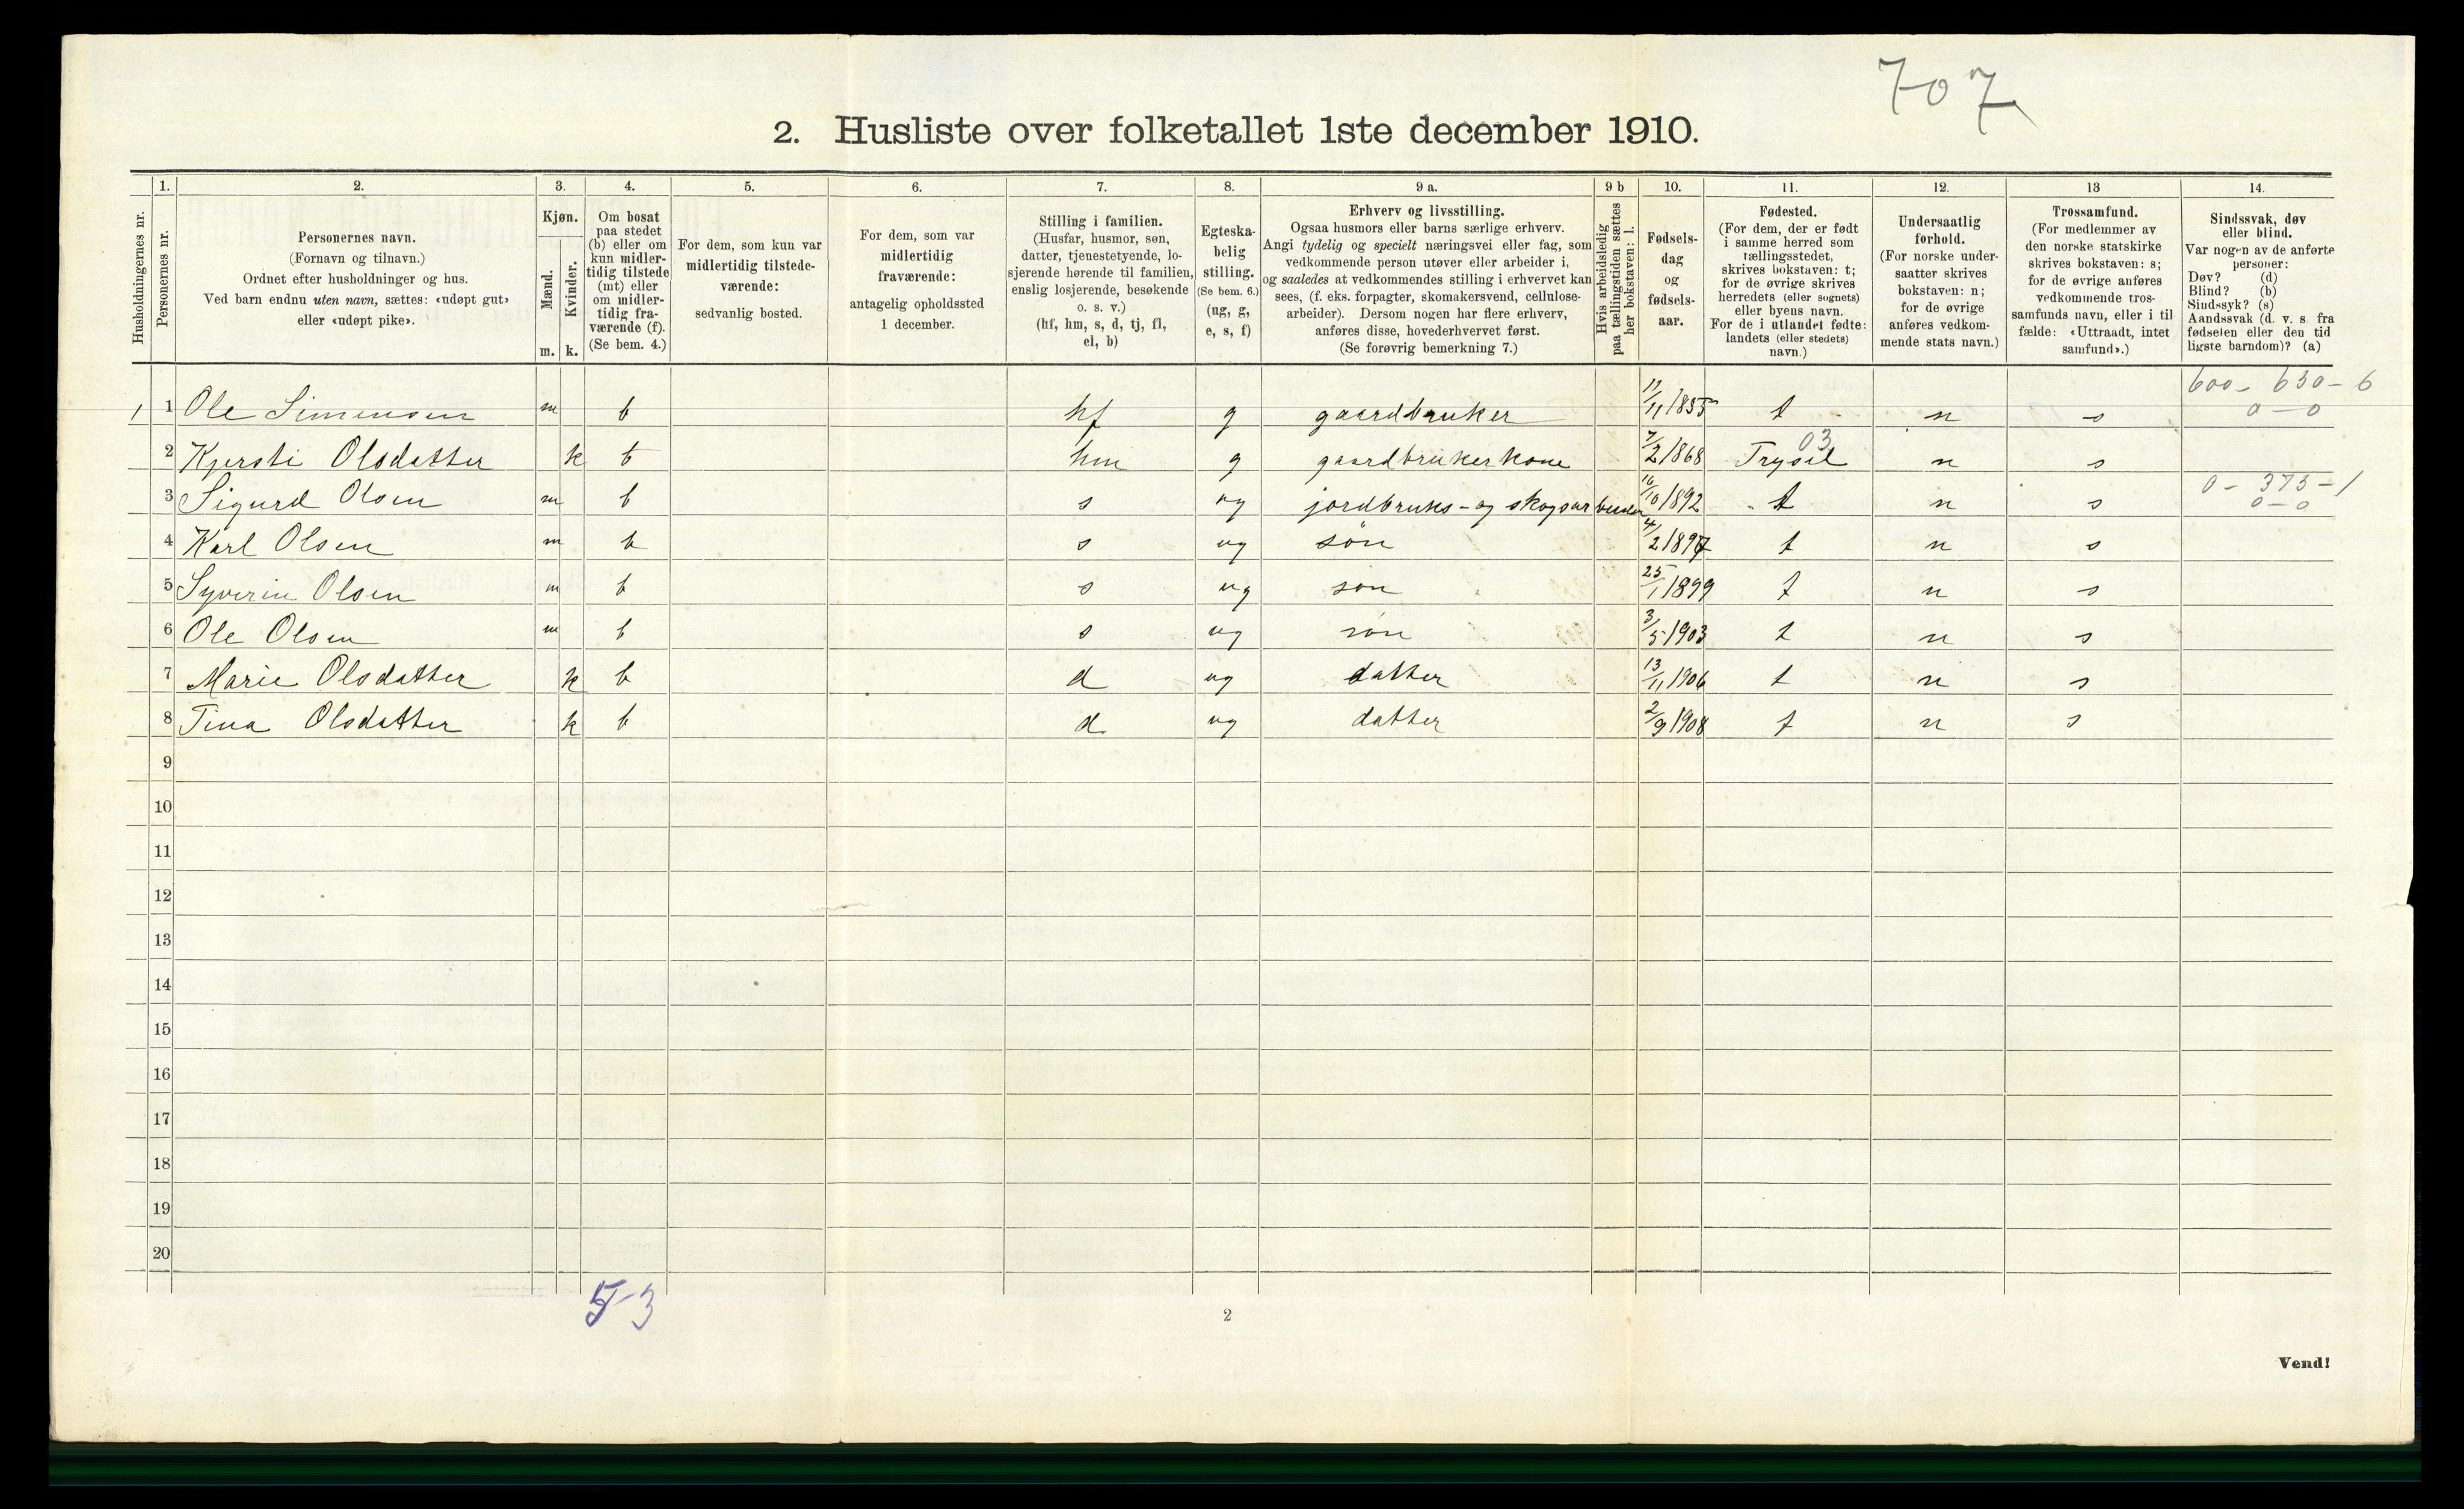 707
2. Husliste over folketallet 1ste december 1910.
Husholdningernes nr.
1.
Personernes nr.
2.
Personernes navn.
(Fornavn og tilnavn.)
Ordnet efter husholdninger og hus.
Ved barn endnu uten navn, sættes: «udøpt gut»
eller «udøpt pike».
3.
Kjøn.
Mænd.
Kvinder.
m. k.
4.
Om bosat
paa stedet
(b) eller om
kun midler-
tidig tilstede
(mt) eller
om midler-
tidig fra-
værende (f).
(Se bem. 4.)
5.
For dem, som kun var
midlertidig tilstede-
værende:
sedvanlig bosted.
6.
For dem, som var
midlertidig
fraværende:
antagelig opholdssted
1 december.
7.
Stilling i familien.
(Husfar, husmor, søn,
datter, tjenestetyende, lo-
sjerende hørende til familien,
enslig losjerende, besøkende
o. s. v.)
(hf, hm, s, d, tj, fl,
el, b)
8.
Egteska-
belig
stilling.
(Se bem. 6.)
(ug, g,
e, s, f)
9 a.
Erhverv og livsstilling.
Ogsaa husmors eller barns særlige erhverv.
Angi tydelig og specielt næringsvei eller fag, som
vedkommende person utøver eller arbeider i,
og saaledes at vedkommendes stilling i erhvervet kan
sees, (f. eks. forpagter, skomakersvend, cellulose-
arbeider). Dersom nogen har flere erhverv,
anføres disse, hovederhvervet først.
(Se forøvrig bemerkning 7.)
9 b
Hvis arbeidsledig
paa tællingstiden sættes
her bokstaven: l.
10.
Fødsels-
dag
og
fødsels-
aar.
11.
Fødested.
(For dem, der er født
i samme herred som
tællingsstedet,
skrives bokstaven: t;
for de øvrige skrives
herredets (eller sognets)
eller byens navn.
For de i utlandet fødte:
landets (eller stedets)
navn.)
12.
Undersaatlig
forhold.
(For norske under-
saatter skrives
bokstaven: n;
for de øvrige
anføres vedkom-
mende stats navn.)
13
Trossamfund.
(For medlemmer av
den norske statskirke
skrives bokstaven: s;
for de øvrige anføres
vedkommende tros-
samfunds navn, eller i til
fælde: «Uttraadt, intet
samfund».)
14.
Sindssvak, døv
eller blind.
Var nogen av de anførte
personer:
Døv? (d)
Blind? (b)
Sindssyk? (s)
Aandssvak (d. v. s. fra
fødselen eller den tid
ligste barndom)? (a)
600 - 630 - 6
1 1 Ole Simensen m b hf g gaardbruker 11/11 1855 t n s 0 - 0
2 Kjersti Olsdatter k b hm g gaardbrukerkone 7/2 1868 Trysil 03 n s
3 Sigurd Olsen m b s ug jordbruks- og skogsarbeider 16/10 1892 t n s 0 - 375 - 1
0 - 0
4 Karl Olsen m b s ug søn 4/2 1897 t n s
5 Syverin Olsen m b s ug søn 25/1 1899 t n s
6 Ole Olsen m b s ug søn 3/5 1903 t n s
7 Marie Olsdatter k b d ug datter 13/11 1906 t n s
8 Tina Olsdatter k b d ug datter 2/9 1908 t n s
9
10
11
12
13
14
15
16
17
18
19
20
5-3
2
Vend!